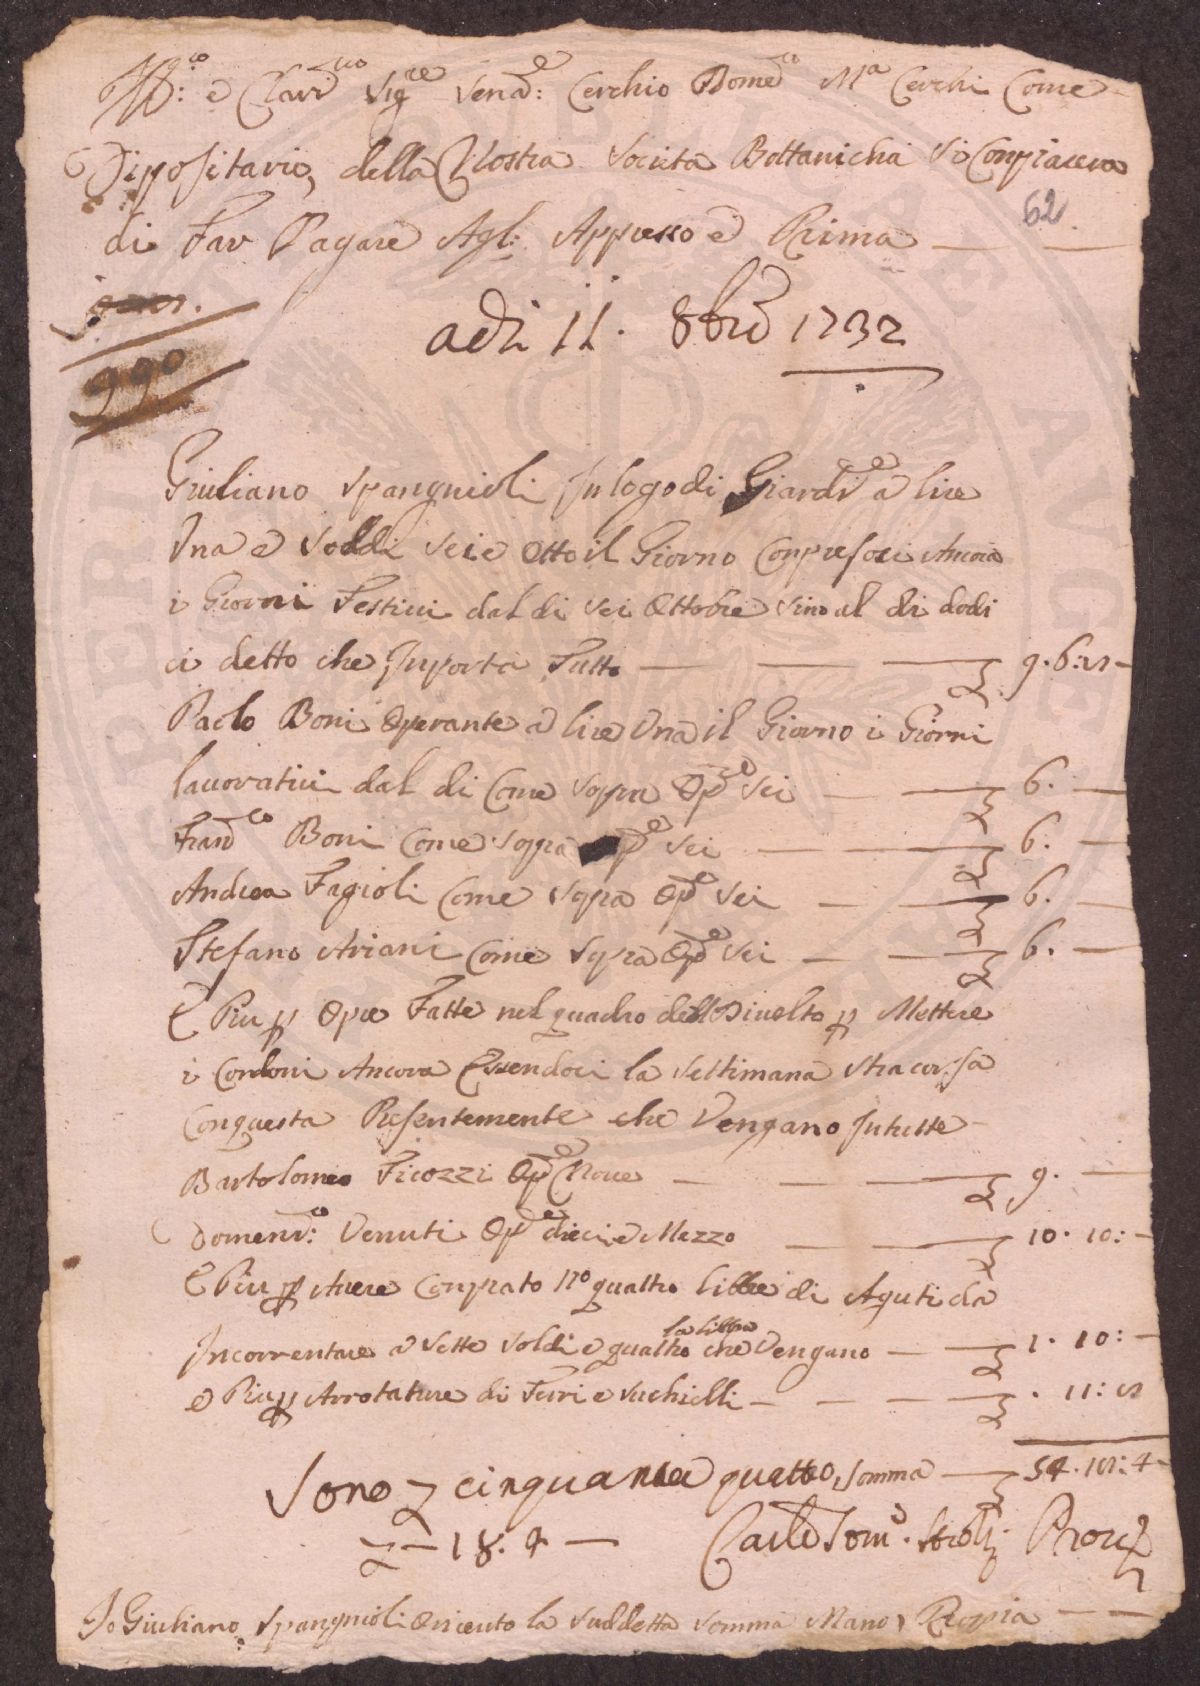 Ill:co e Clariss:mo Sig:re Senat:e Cerchio Domen:co M:a Cerchi Come
Dipositario, della Nostra Societa Bottanicha si Conpiacera
62
di Far Pagare Agl: Appresso e Prima
990
adi 11. 8bre 1732
Giuliano Spangnioli In logo di Giardi:e a lire
Una e Soldi Sei e Otto il Giorno Conpresoci Ancora
i Giorni Festivi dal di Sei Ottobre Sino al di dodi
ci detto che Inporta Tutto 9. 6:8
Paolo Boni Operante a lire Una il Giorno i Giorni
lavorativi dal di Come Sopra Op:e Sei 6.
Fran:co Boni Come Sopra Op:e Sei 6.
Andrea Fagioli Come Sopra Op:e Sei 6.
Stefano Ariani Come Sopra Op:e Sei 6.
E Piu p Opre Fatte nel quadro dell Divelto p Mettere
i Cordoni Ancora Essendoci la Settimana Stracorsa
Conquesta Presentemente che Vengano In tutte
Bartolomeo Ficozzi Op:e Nove 9.
Domeni:co Venuti Op:e dieci e Mezzo 10. 10:
E Piu p Avere Conprato n:o quattro libbre di Aguti da
Incorrentare a Sette Soldi e quattro la libbra che Vengano 1. 10:
e Piu p Arrotature di Ferri e Suchielli . 11:8
Sono cinquanta quattro Somma 54. 18: 4
18. 4 Carlo Tom:o
Io Giuliano Spangnioli O ricevuto la Suddetta Somma Mano, Propia